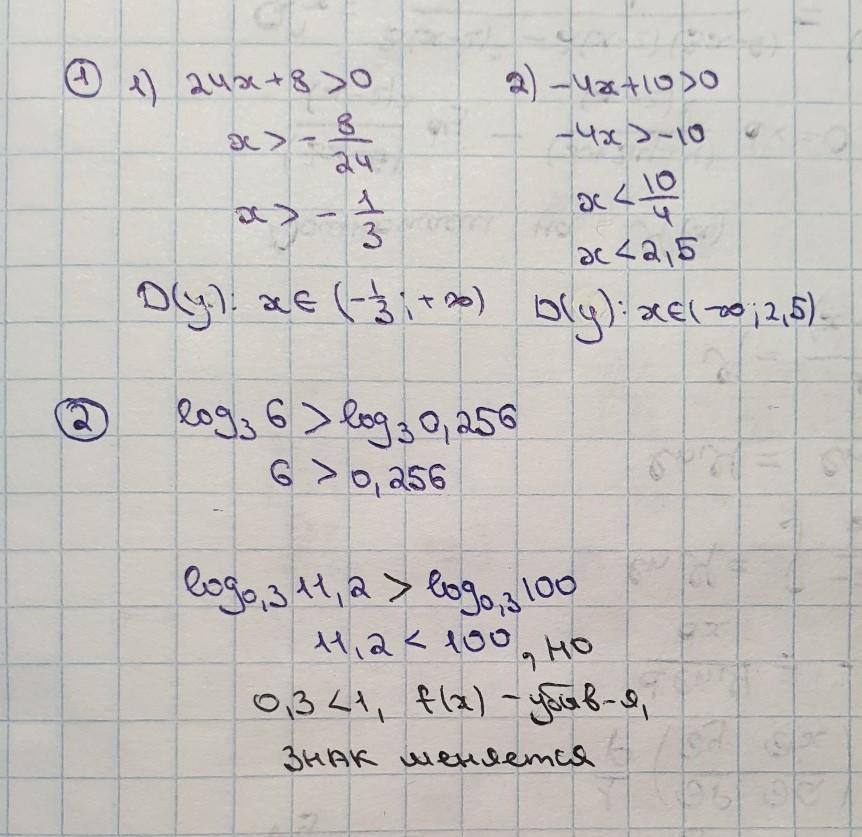 ① 1) 24x+8>0
x>-8/24
x>-1/3
D(y): x∈(-1/3;+∞)
2) -4x+10>0
-4x>-10
x<10/4
x<2,5
D(y): x∈(-∞;2,5).
② log₃6>log₃0,256
6>0,256
log₀,₃11,2>log₀,₃100
11,2<100, но
0,3<1, f(x) - убыв-я,
знак меняется